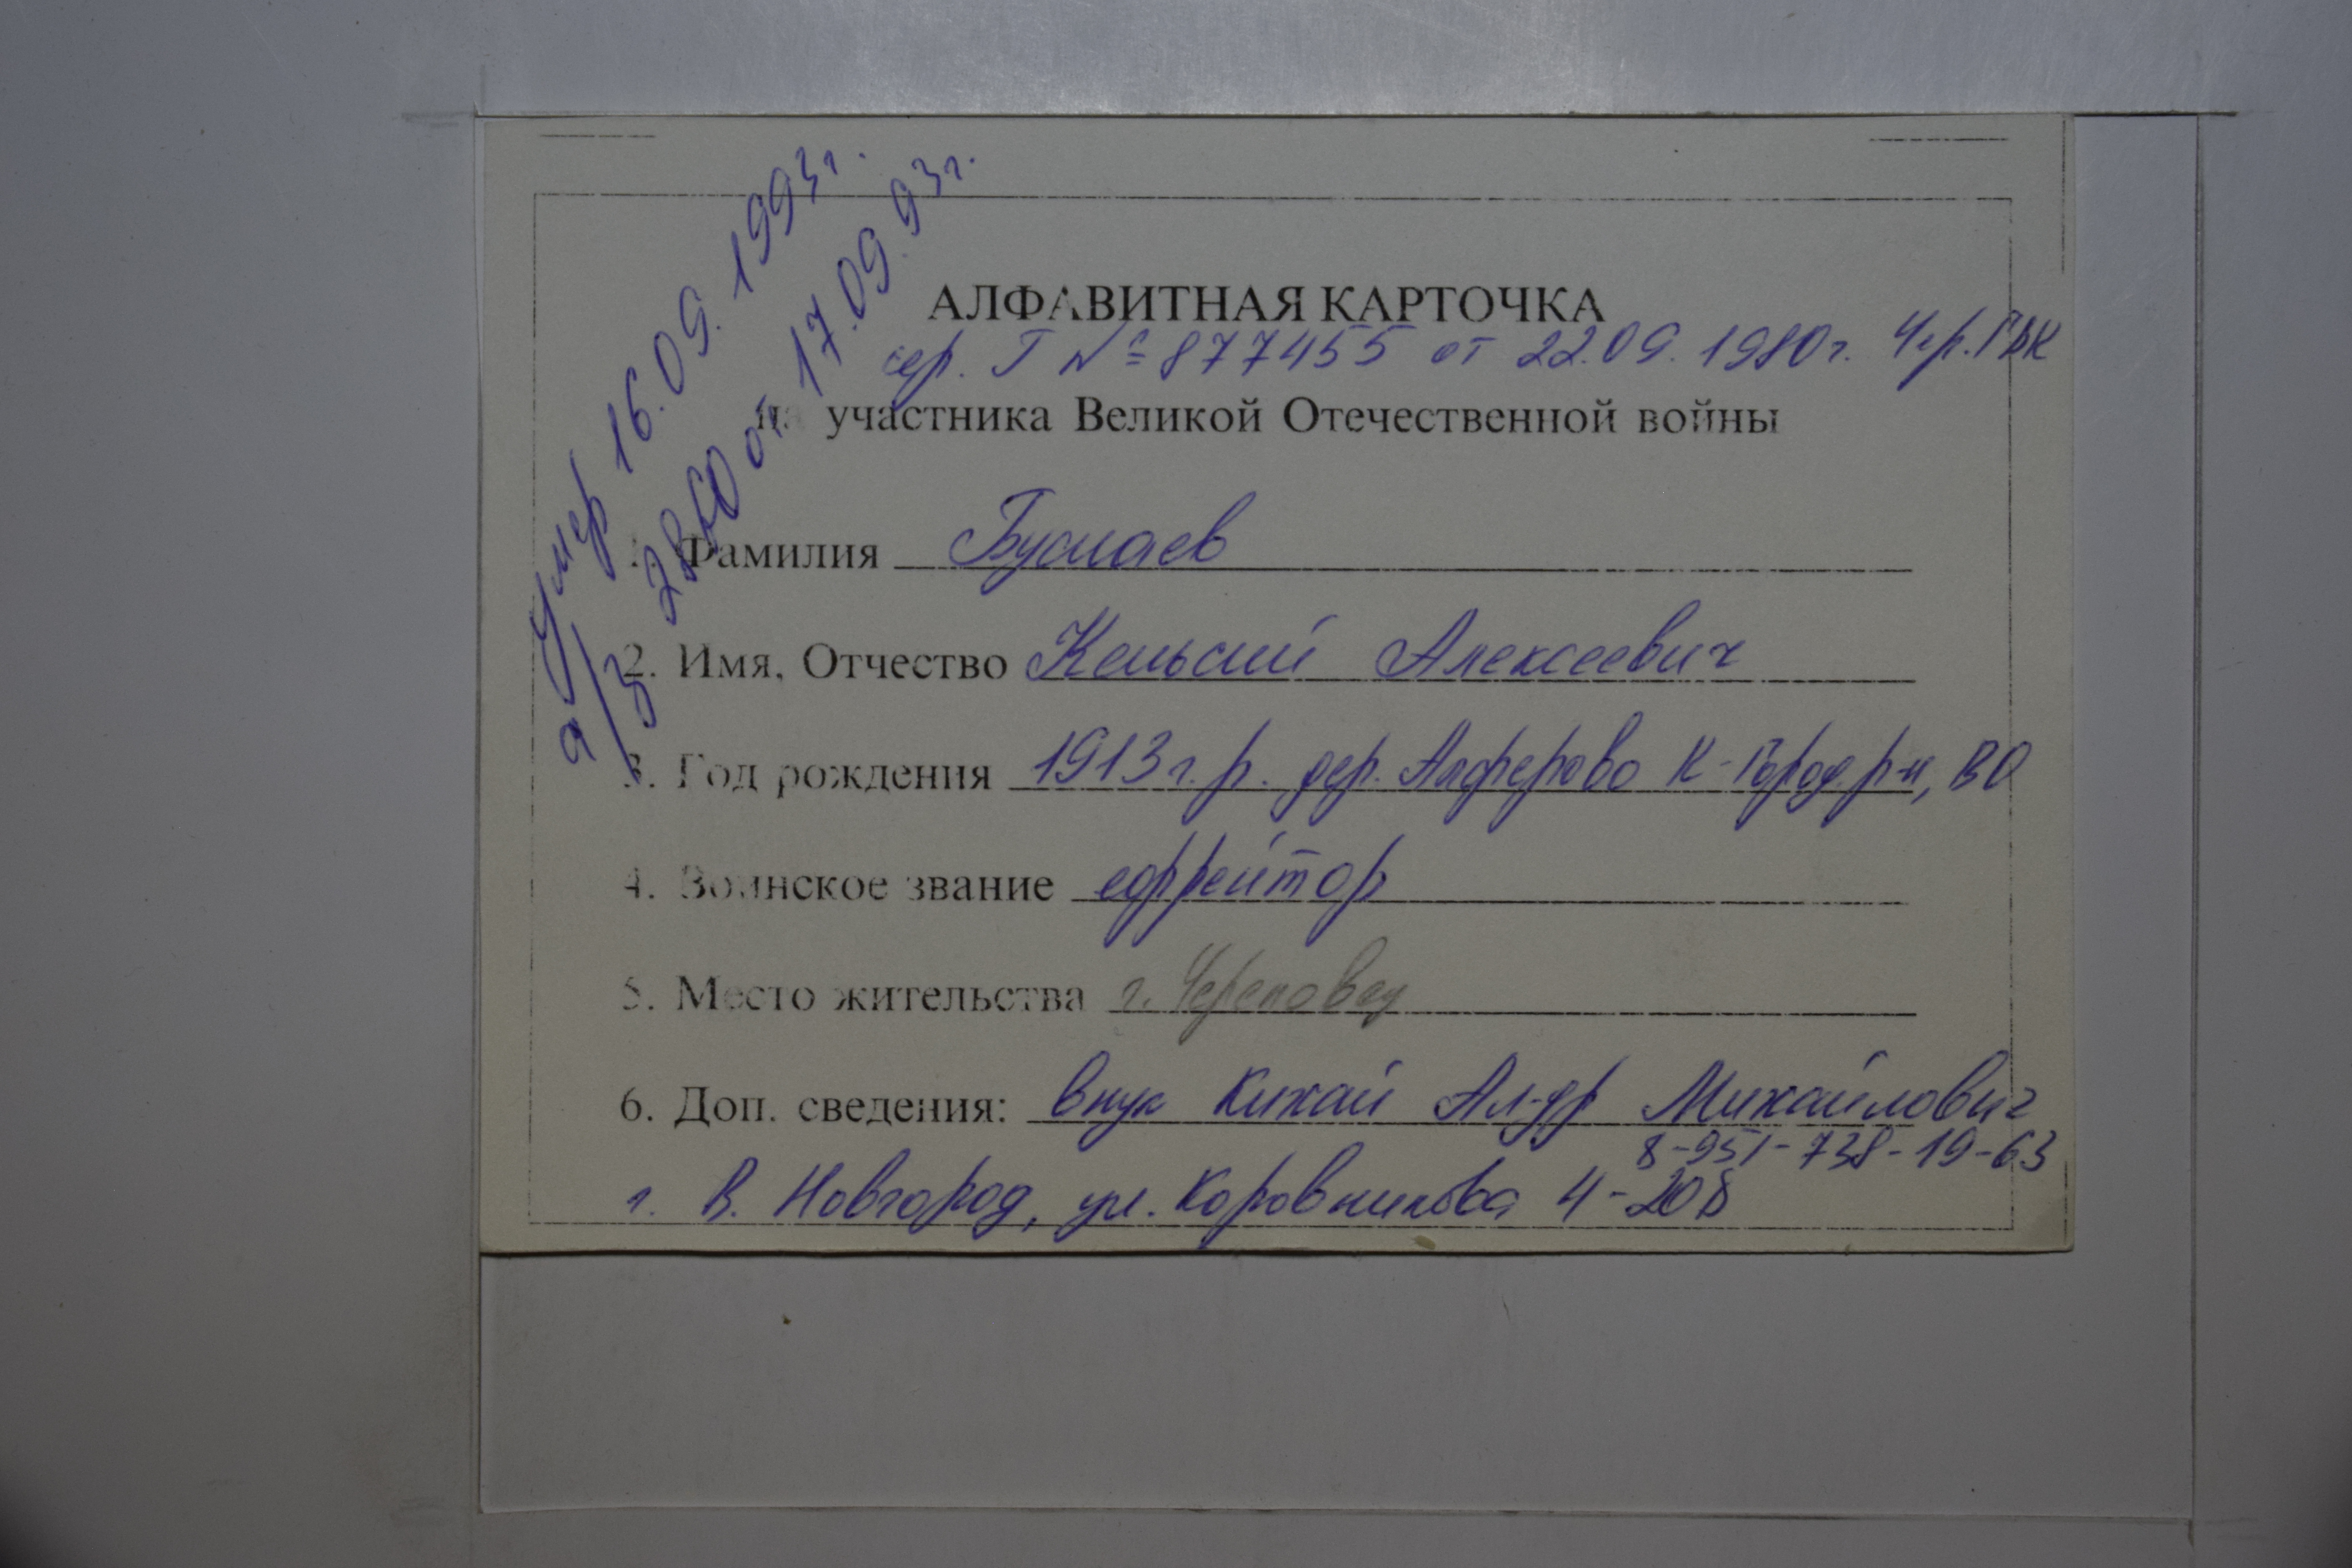 умер 16.09.1993г.
а/з 2860 от 17.09.93г.
АЛФАВИТНАЯ КАРТОЧКА
сер. Г № 877455 от 22.09.1980г. Чер. ГВК
на участника Великой Отечественной войны
1. Фамилия Буслаев
2. Имя, Отчество Кельсий Алексеевич
3. Год рождения 1913г.р. дер. Алферово К-Город.р-н, ВО
4. Воинское звание ефрейтор
5. Место жительства г. Череповец
6. Доп. сведения: внук Ал-др Михайлович
8-951-738-19-63
г. В. Новгород, ул. Коровникова 4-208